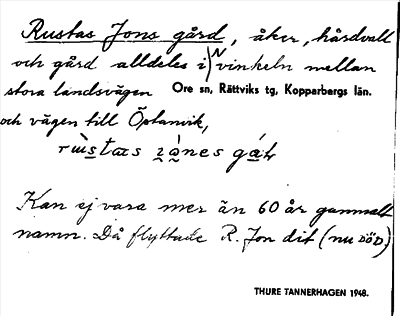 Rustas Jons gård, åker, hårdvall
och gård alldeles i N vinkeln mellan
stora landsvägen Ore sn, Rättviks tg, Kopparbergs län.
och vägen till Östanvik,
Kan ej vara mer än 60 år gammalt
namn. Då flyttade R. Jon dit (nu DÖD).
THURE TANNERHAGEN 1948.